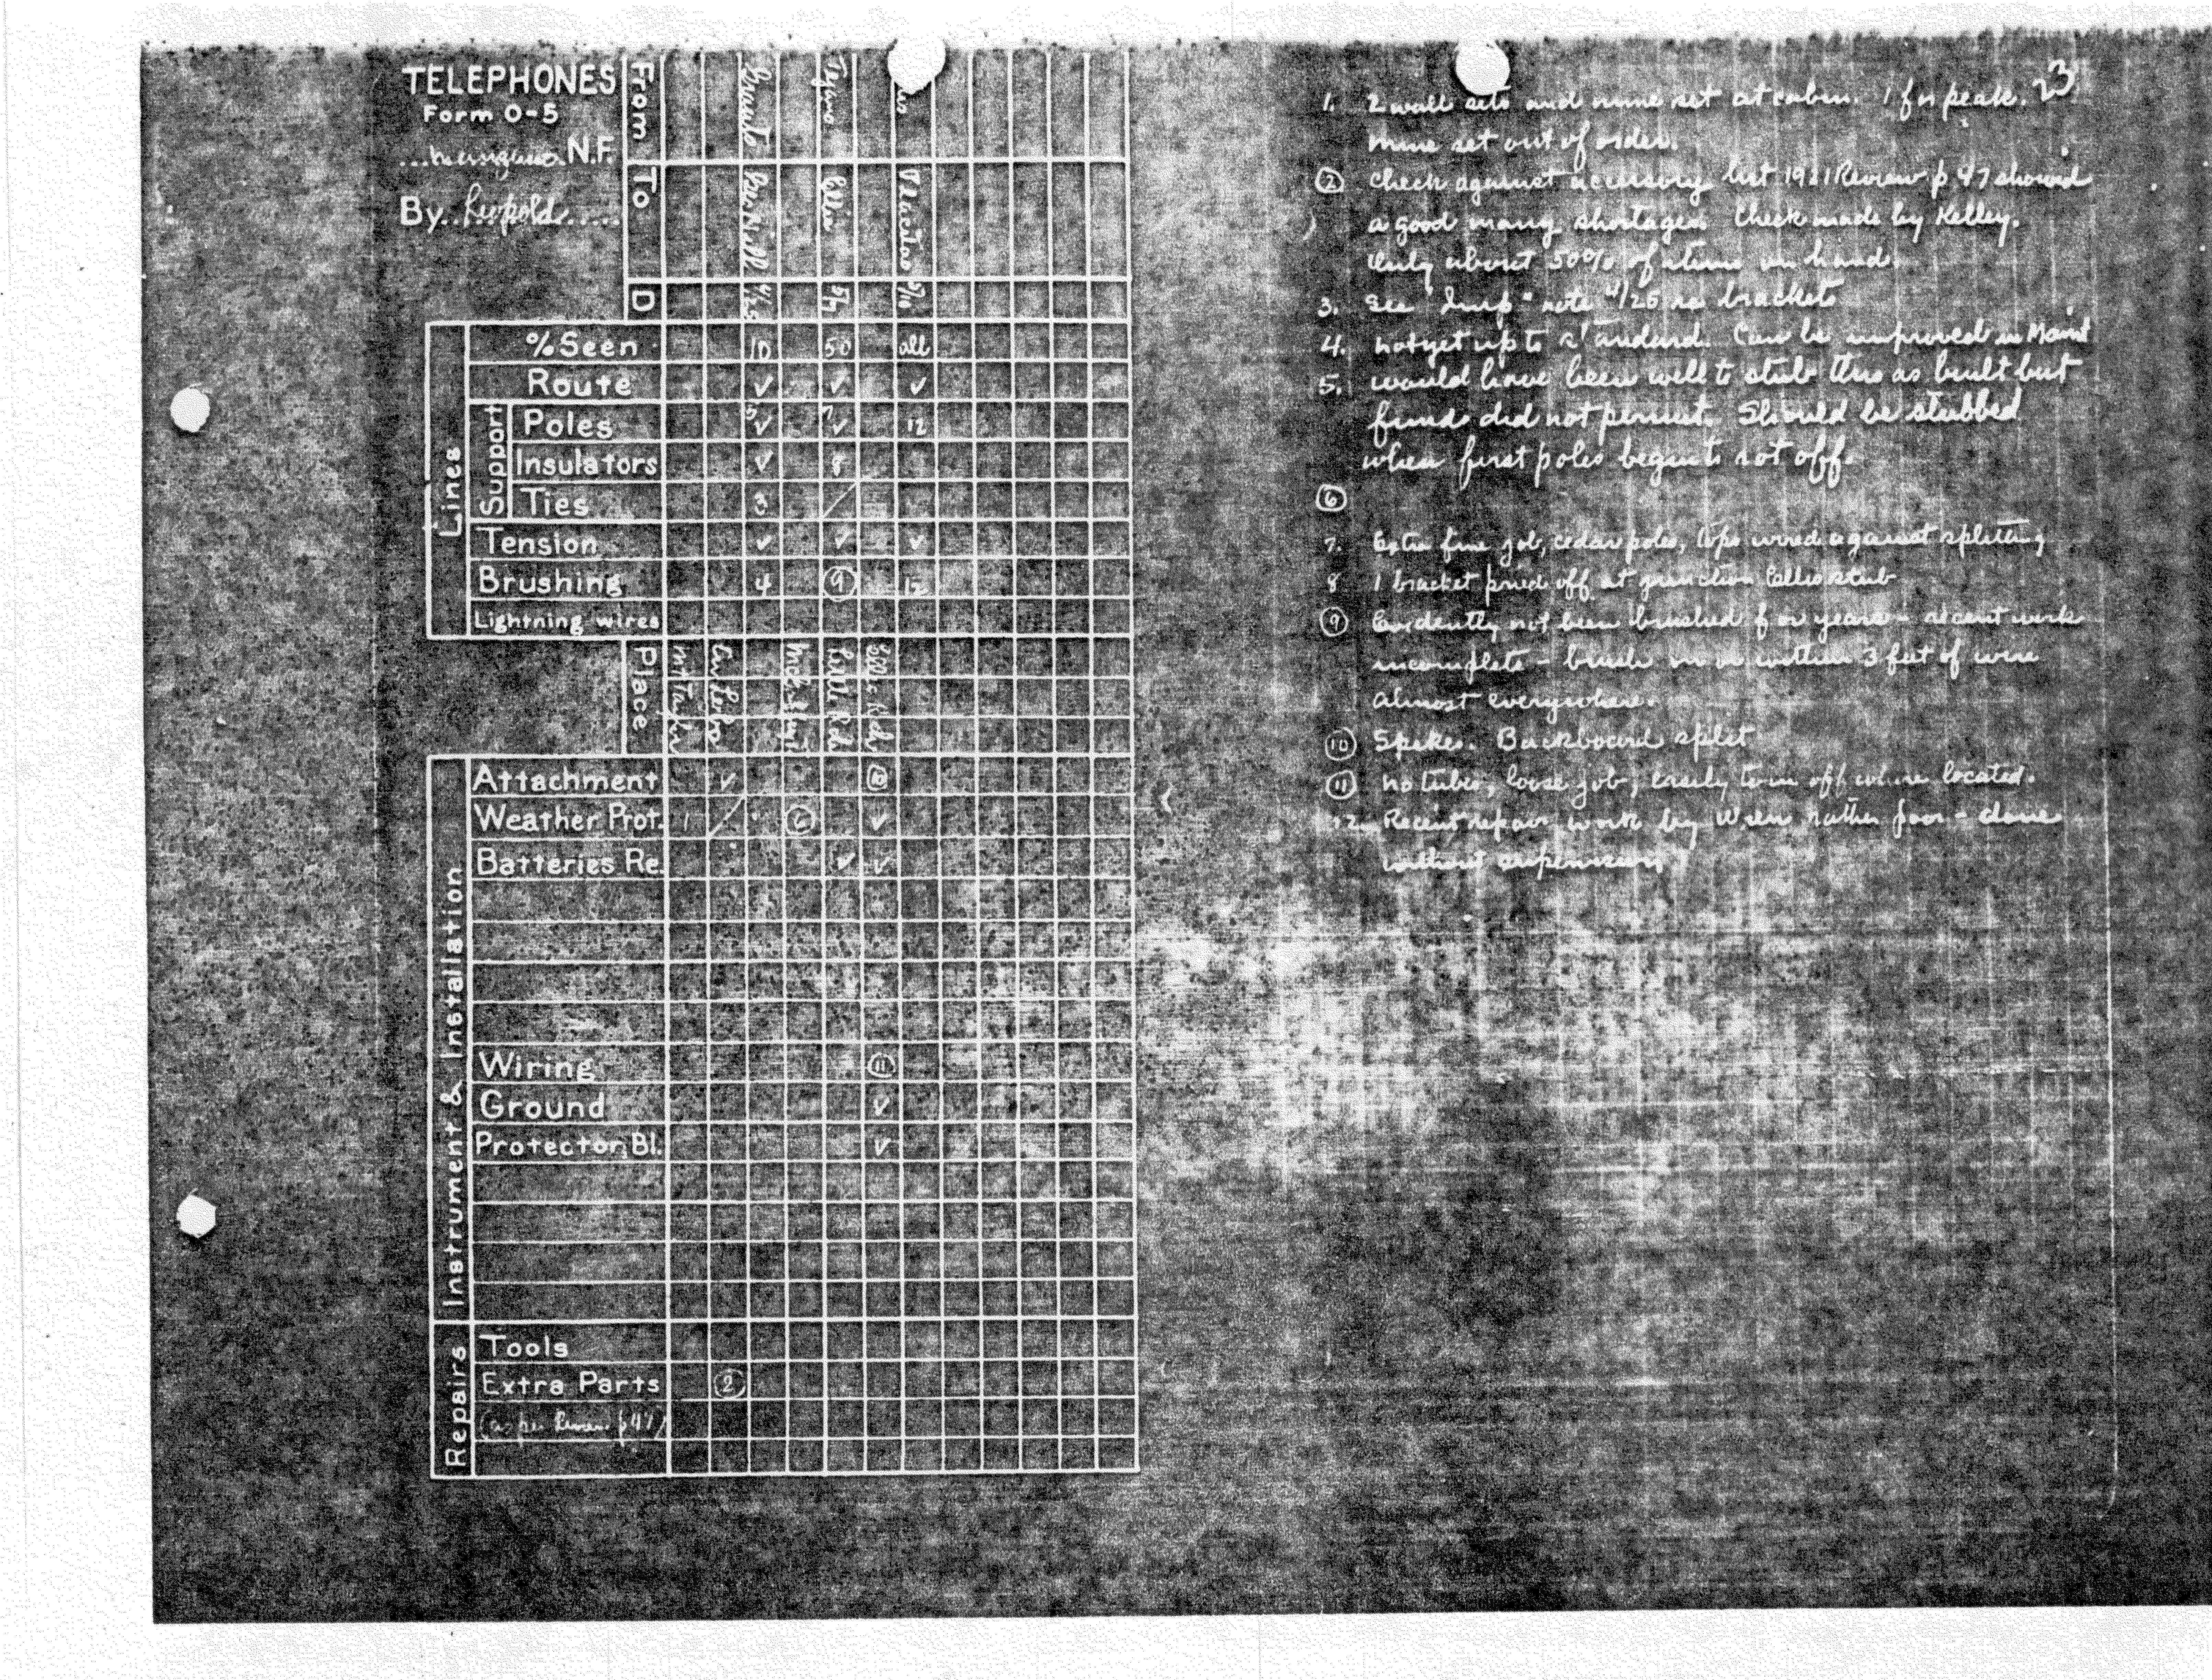 TELEPHONES
Form O-5
N.F.
By Leopold
From
To
D
4/25
5/7
5/10
Lines
Support
%Seen 10 50 all
Route ✓ ✓ ✓
Poles 5 ✓ 7 ✓ 12
Insulators ✓ 8
Ties 3
Tension ✓ ✓ ✓
Brushing 4 9 12
Lightning wires
Place
Mt Taylor
Instrument & Installation
Attachment ✓ 10
Weather Prot. 1 6 ✓
Batteries Re. ✓ ✓
Wiring 11
Ground ✓
Protector Bl. ✓
Repairs
Tools
Extra Parts 2
(as per Review p47)
23
1. 2 wall sets and mine set at cabin. 1 for peak.
Mine set out of order.
2 Check against accessory list 1921 Review p 47 showed
a good many shortages. Check made by Kelley.
Only about 50% of items on hand.
3. See "Imp" note 4/25 re brackets
4. Not yet up to standard. Can be improved in Maint
5. Would have been well to stub this as built but
funds did not permit. Should be stubbed
when first poles begin to rot off.
6
7. Extra fine job, cedar poles, tops wired against splitting
8 1 bracket pried off at junction stub
9 Evidently not been brushed for years - recent work
incomplete - brush on or within 3 feet of wire
almost everywhere.
10 Spikes. Backboard split
11 No tubes, loose job, easily torn off where located.
12. Recent repair work by rather poor - done
without supervision